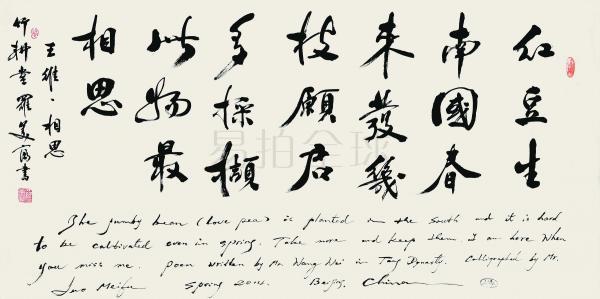 红豆生
南國春
来發幾
枝願君
多採擷
此物最
相思
王維·相思
竹耕堂 羅美富書
The jumby bean (love pea) is planted in the South and it is hard
to be cultivated even in spring. Take more and keep them. I am here when
you miss me. Poem written by Mr. Wang Wei in Tang Dynasty. Calligraphed by Mr.
Luo Meifu Spring 2014. Beijing, China
易拍全球